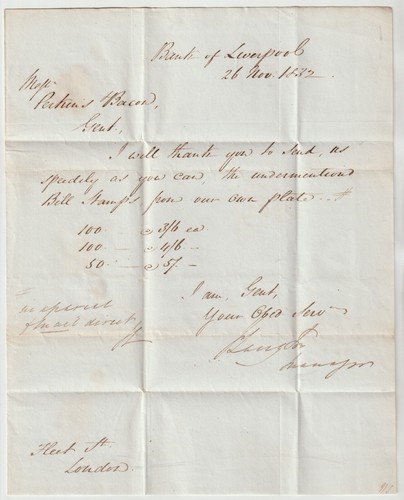 Bank of Liverpool
26 Nov. 1832.
Messrs
Perkins & Bacon,
Gent.,
I will thank you to send, as
speedily as you can, the undermentioned
Bill Stamps from our own plate.
100 @ 3/6 ea
100 — @ 4/6 —
50 — @ 5/ —
I am, Gent,
Your Obed Serv
Manager
Fleet St
London